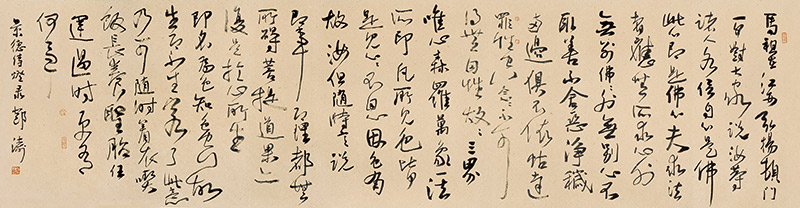 馬祖江西弘揚頓門
一日對大众說汝等
諸人各信自心是佛
此心即是佛心夫求法
者應無所求心外
無別佛佛外無別心不
取善不舍惡淨穢
兩邊俱不依怙達
罪性空念念不可
得無自性故故三界
唯心森羅萬象一法
之所印凡所見色皆
是見心心不自心因色有
故汝但隨時言說
即事即理都無
所碍菩提道果亦
復如是於心所生
即名為色知色空故
生即不生若了此意
乃可隨時着衣喫
飯長養聖胎任
運過時更有
何事
景德傳燈录 郭濤